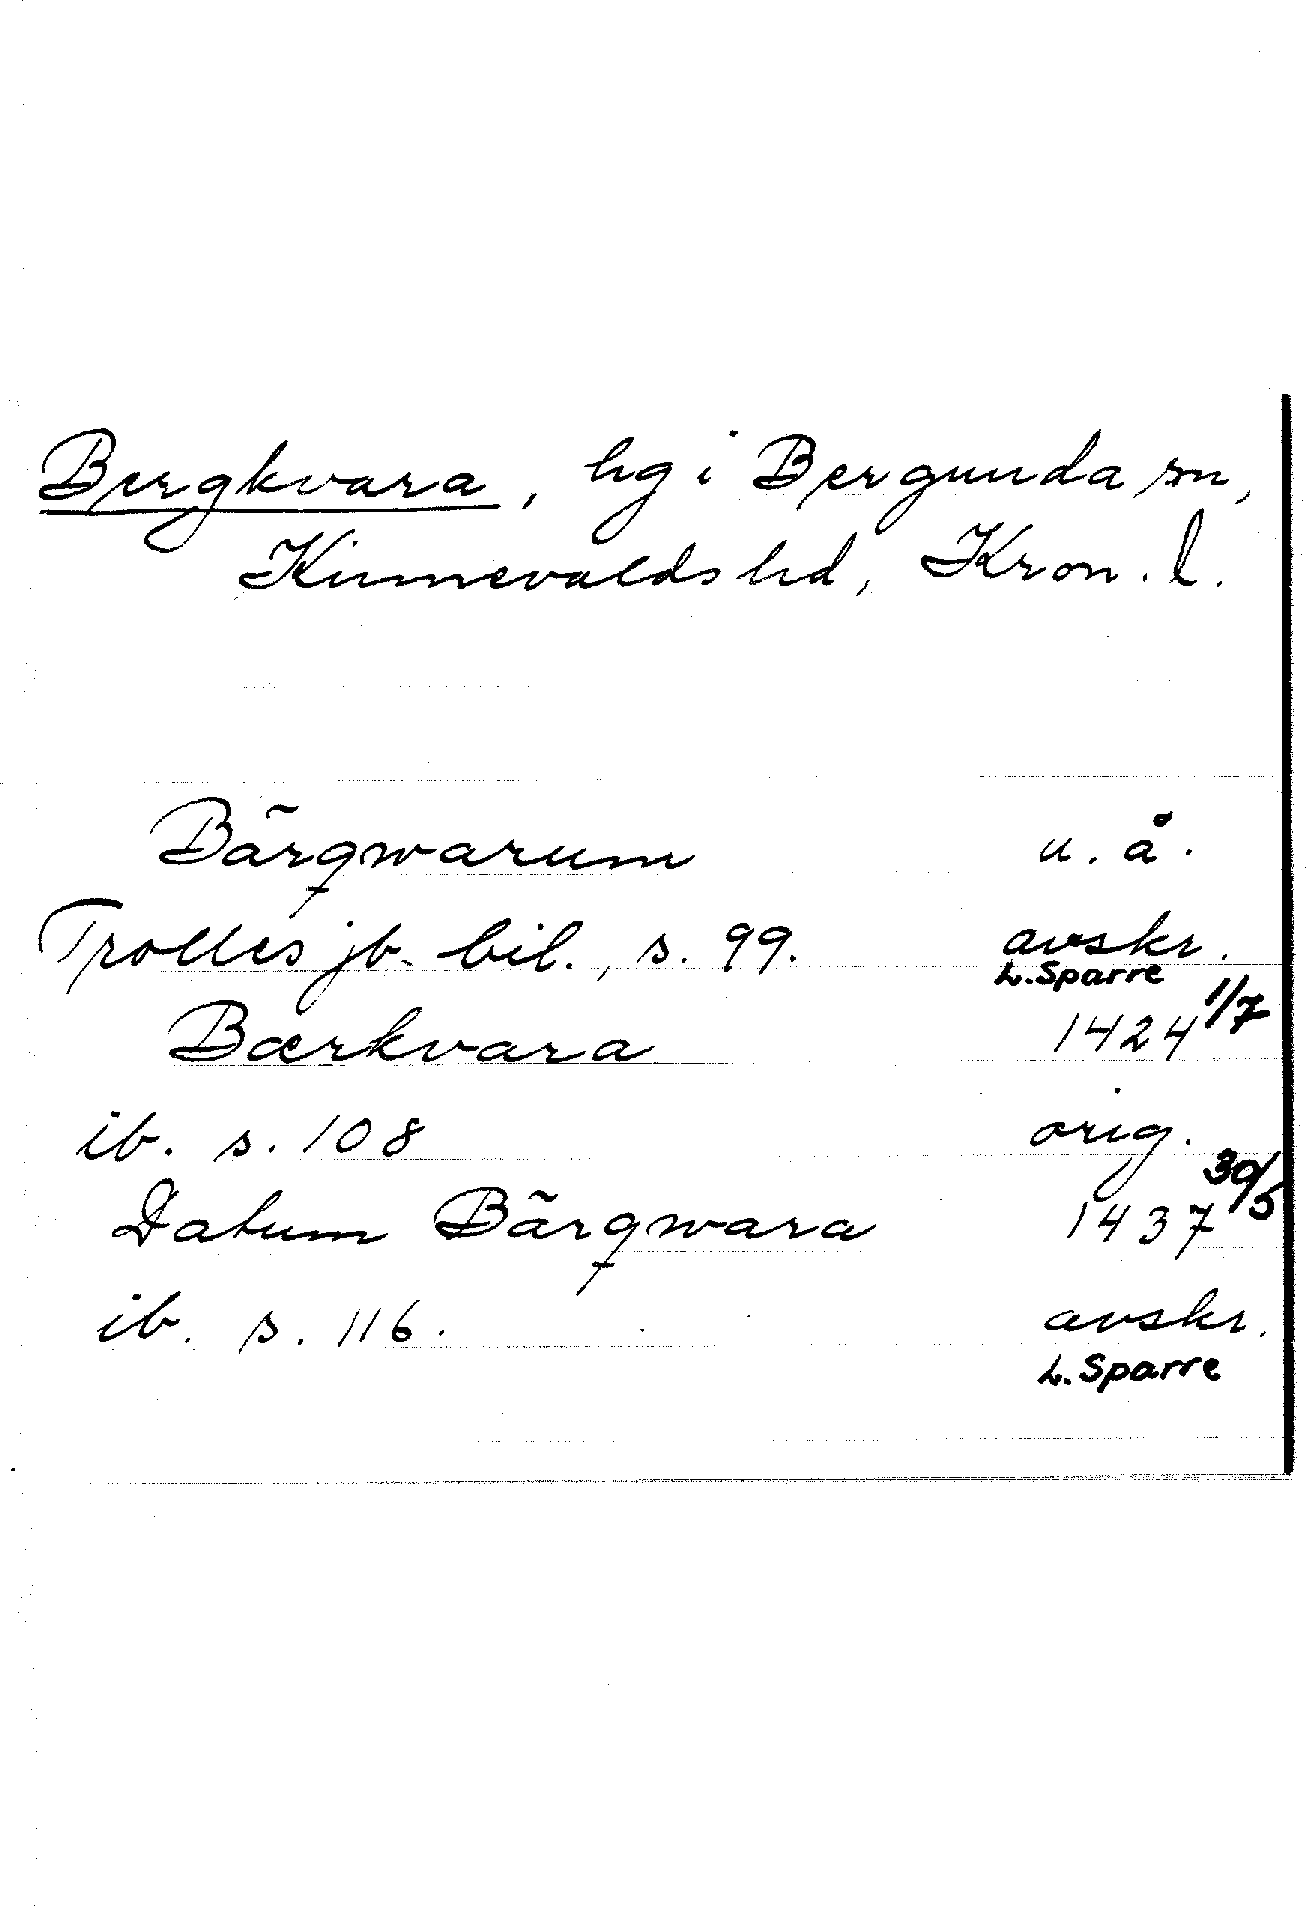 Bergkvara, hg i Bergunda sn,
Kinnevalds hd, Kron. l.
Bärqwarum u. å.
Trolles jb. bil., s. 99. avskr.
L. Sparre
Bærkvara 1424 1/7
ib. s. 108 orig.
Datum Bärqwara 1437 30/5
ib. s. 116. avskr.
L. Sparre